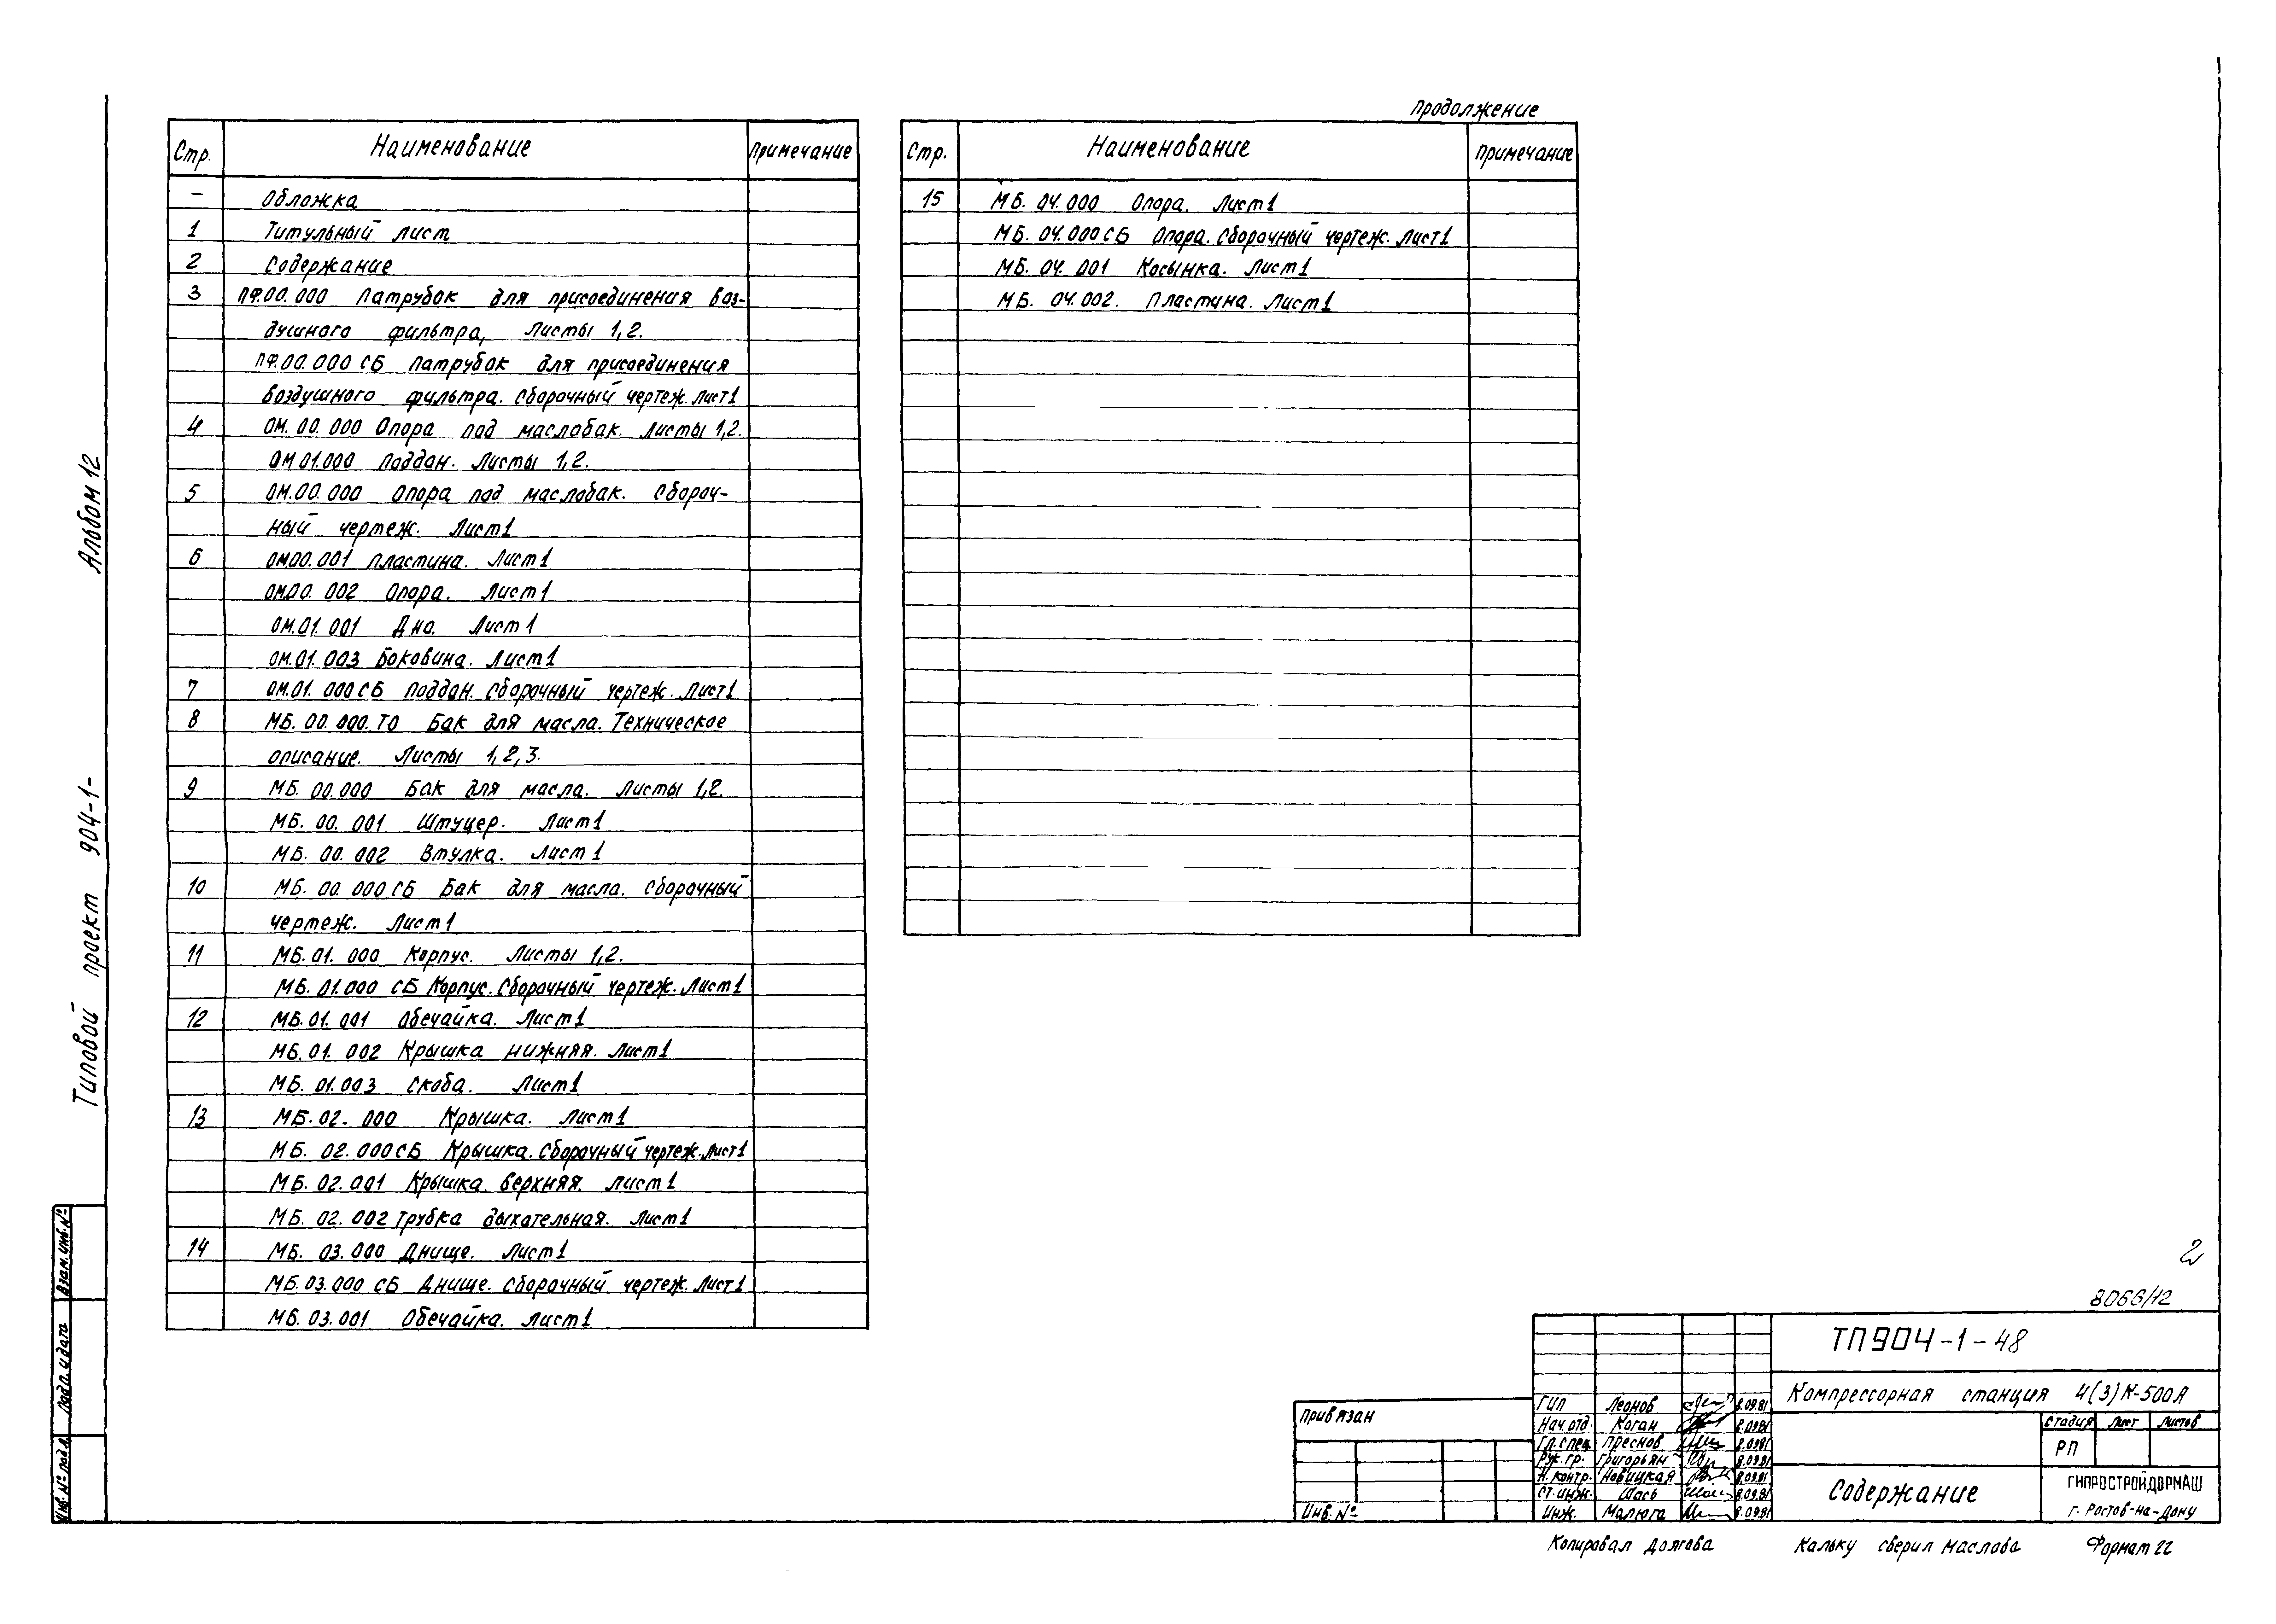 Продолжение
Стр. Наименование Примечание
— Обложка
1 Титульный лист
2 Содержание
3 ПФ.00.000 Патрубок для присоединения воз-
душного фильтра, Листы 1,2.
ПФ.00.000 СБ Патрубок для присоединения
воздушного фильтра. Сборочный чертеж. Лист1
4 ОМ.00.000 Опора под маслобак. Листы 1,2.
ОМ 01.000 Поддон. Листы 1,2.
5 ОМ.00.000 Опора под маслобак. Сбороч-
ный чертеж. Лист1
6 ОМ.00.001 Пластина. Лист1
ОМ.00.002 Опора. Лист1
ОМ.01.001 Дно. Лист1
ОМ.01.003 Боковина. Лист1
7 ОМ.01.000СБ Поддон. Сборочный чертеж. Лист1
8 МБ.00.000.ТО Бак для масла. Техническое
описание. Листы 1,2,3.
9 МБ.00.000 Бак для масла. Листы 1,2.
МБ.00.001 Штуцер. Лист1
МБ.00.002 Втулка. Лист1
10 МБ.00.000СБ Бак для масла. Сборочный
чертеж. Лист1
11 МБ.01.000 Корпус. Листы 1,2.
МБ.01.000 СБ Корпус. Сборочный чертеж. Лист1
12 МБ.01.001 Обечайка. Лист1
МБ.01.002 Крышка нижняя. Лист1
МБ.01.003 Скоба. Лист1
13 МБ.02.000 Крышка. Лист1
МБ.02.000СБ Крышка. Сборочный чертеж. Лист1
МБ.02.001 Крышка. верхняя. Лист1
МБ.02.002 Трубка дыхательная. Лист1
14 МБ.03.000 Днище. Лист1
МБ.03.000 СБ Днище. Сборочный чертеж. Лист1
МБ.03.001 Обечайка. Лист1
Стр. Наименование Примечание
15 МБ.04.000 Опора. Лист1
МБ.04.000СБ Опора. Сборочный чертеж. Лист1
МБ.04.001 Косынка. Лист1
МБ.04.002. Пластина. Лист1
Альбом 12
Типовой проект 904-1-
Взам. инв. №
Подп. и дата
Инв. № подл.
2
8066/12
ТП904-1-48
Компрессорная станция 4(3)К-500А
Стадия Лист Листов
РП
Содержание
ГИПРОСТРОЙДОРМАШ
г. Ростов-на-Дону
Привязан
Инв. №
ГИП Леонов 8.09.81
Нач. отд. Коган 8.09.81
Гл. спец. Преснов 8.09.81
Рук. гр. Григорьян 8.09.81
Н. контр. Новицкая 8.09.81
Ст. инж. Шась 8.09.81
Инж. Малюга 8.09.81
Копировал Долгова Кальку сверил Маслова Формат 22